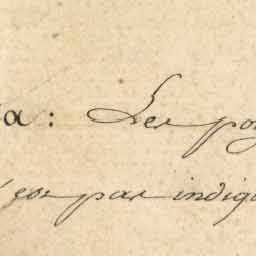 a : Les po
par indig